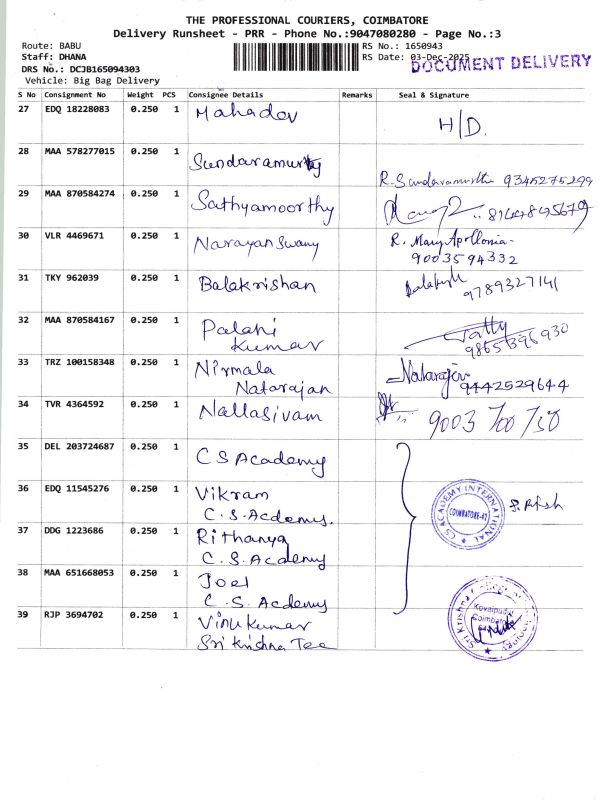 THE PROFESSIONAL COURIERS, COIMBATORE
Delivery Runsheet - PRR - Phone No.:9047080280 - Page No.:3
Route: BABU
Staff: DHANA
DRS No.: DCJB165094303
Vehicle: Big Bag Delivery
RS No.: 1650943
RS Date: 03-Dec-2025
DOCUMENT DELIVERY
S No Consignment No Weight PCS Consignee Details Remarks Seal & Signature
27 EDQ 18228083 0.250 1 Mahadev H/D.
28 MAA 578277015 0.250 1 Sundaramurty
R. Sundaramurthi 9345275299
29 MAA 870584274 0.250 1 Sathyamoorthy 8144845679
30 VLR 4469671 0.250 1 Narayanswamy R. Mary Apollonia-
9003594332
31 TKY 962039 0.250 1 Balakrishan 9789327141
32 MAA 870584167 0.250 1 Palani
Kumar 9865396930
33 TRZ 100158348 0.250 1 Nirmala
Natarajan Natarajan 9442529644
34 TVR 4364592 0.250 1 Nallasivam 9003 700 750
35 DEL 203724687 0.250 1 CS Academy
36 EDQ 11545276 0.250 1 Vikram
C.S. Acdemy.
CS ACADEMY INTERNATIONAL
COIMBATORE-42
37 DDG 1223686 0.250 1 Rithanya
C.S. Academy
38 MAA 651668053 0.250 1 Joel
C.S. Acdemy
39 RJP 3694702 0.250 1 Vinukumar
Sri Krishna Tee
Sri Krishna College
Kovaipudur
Coimbatore